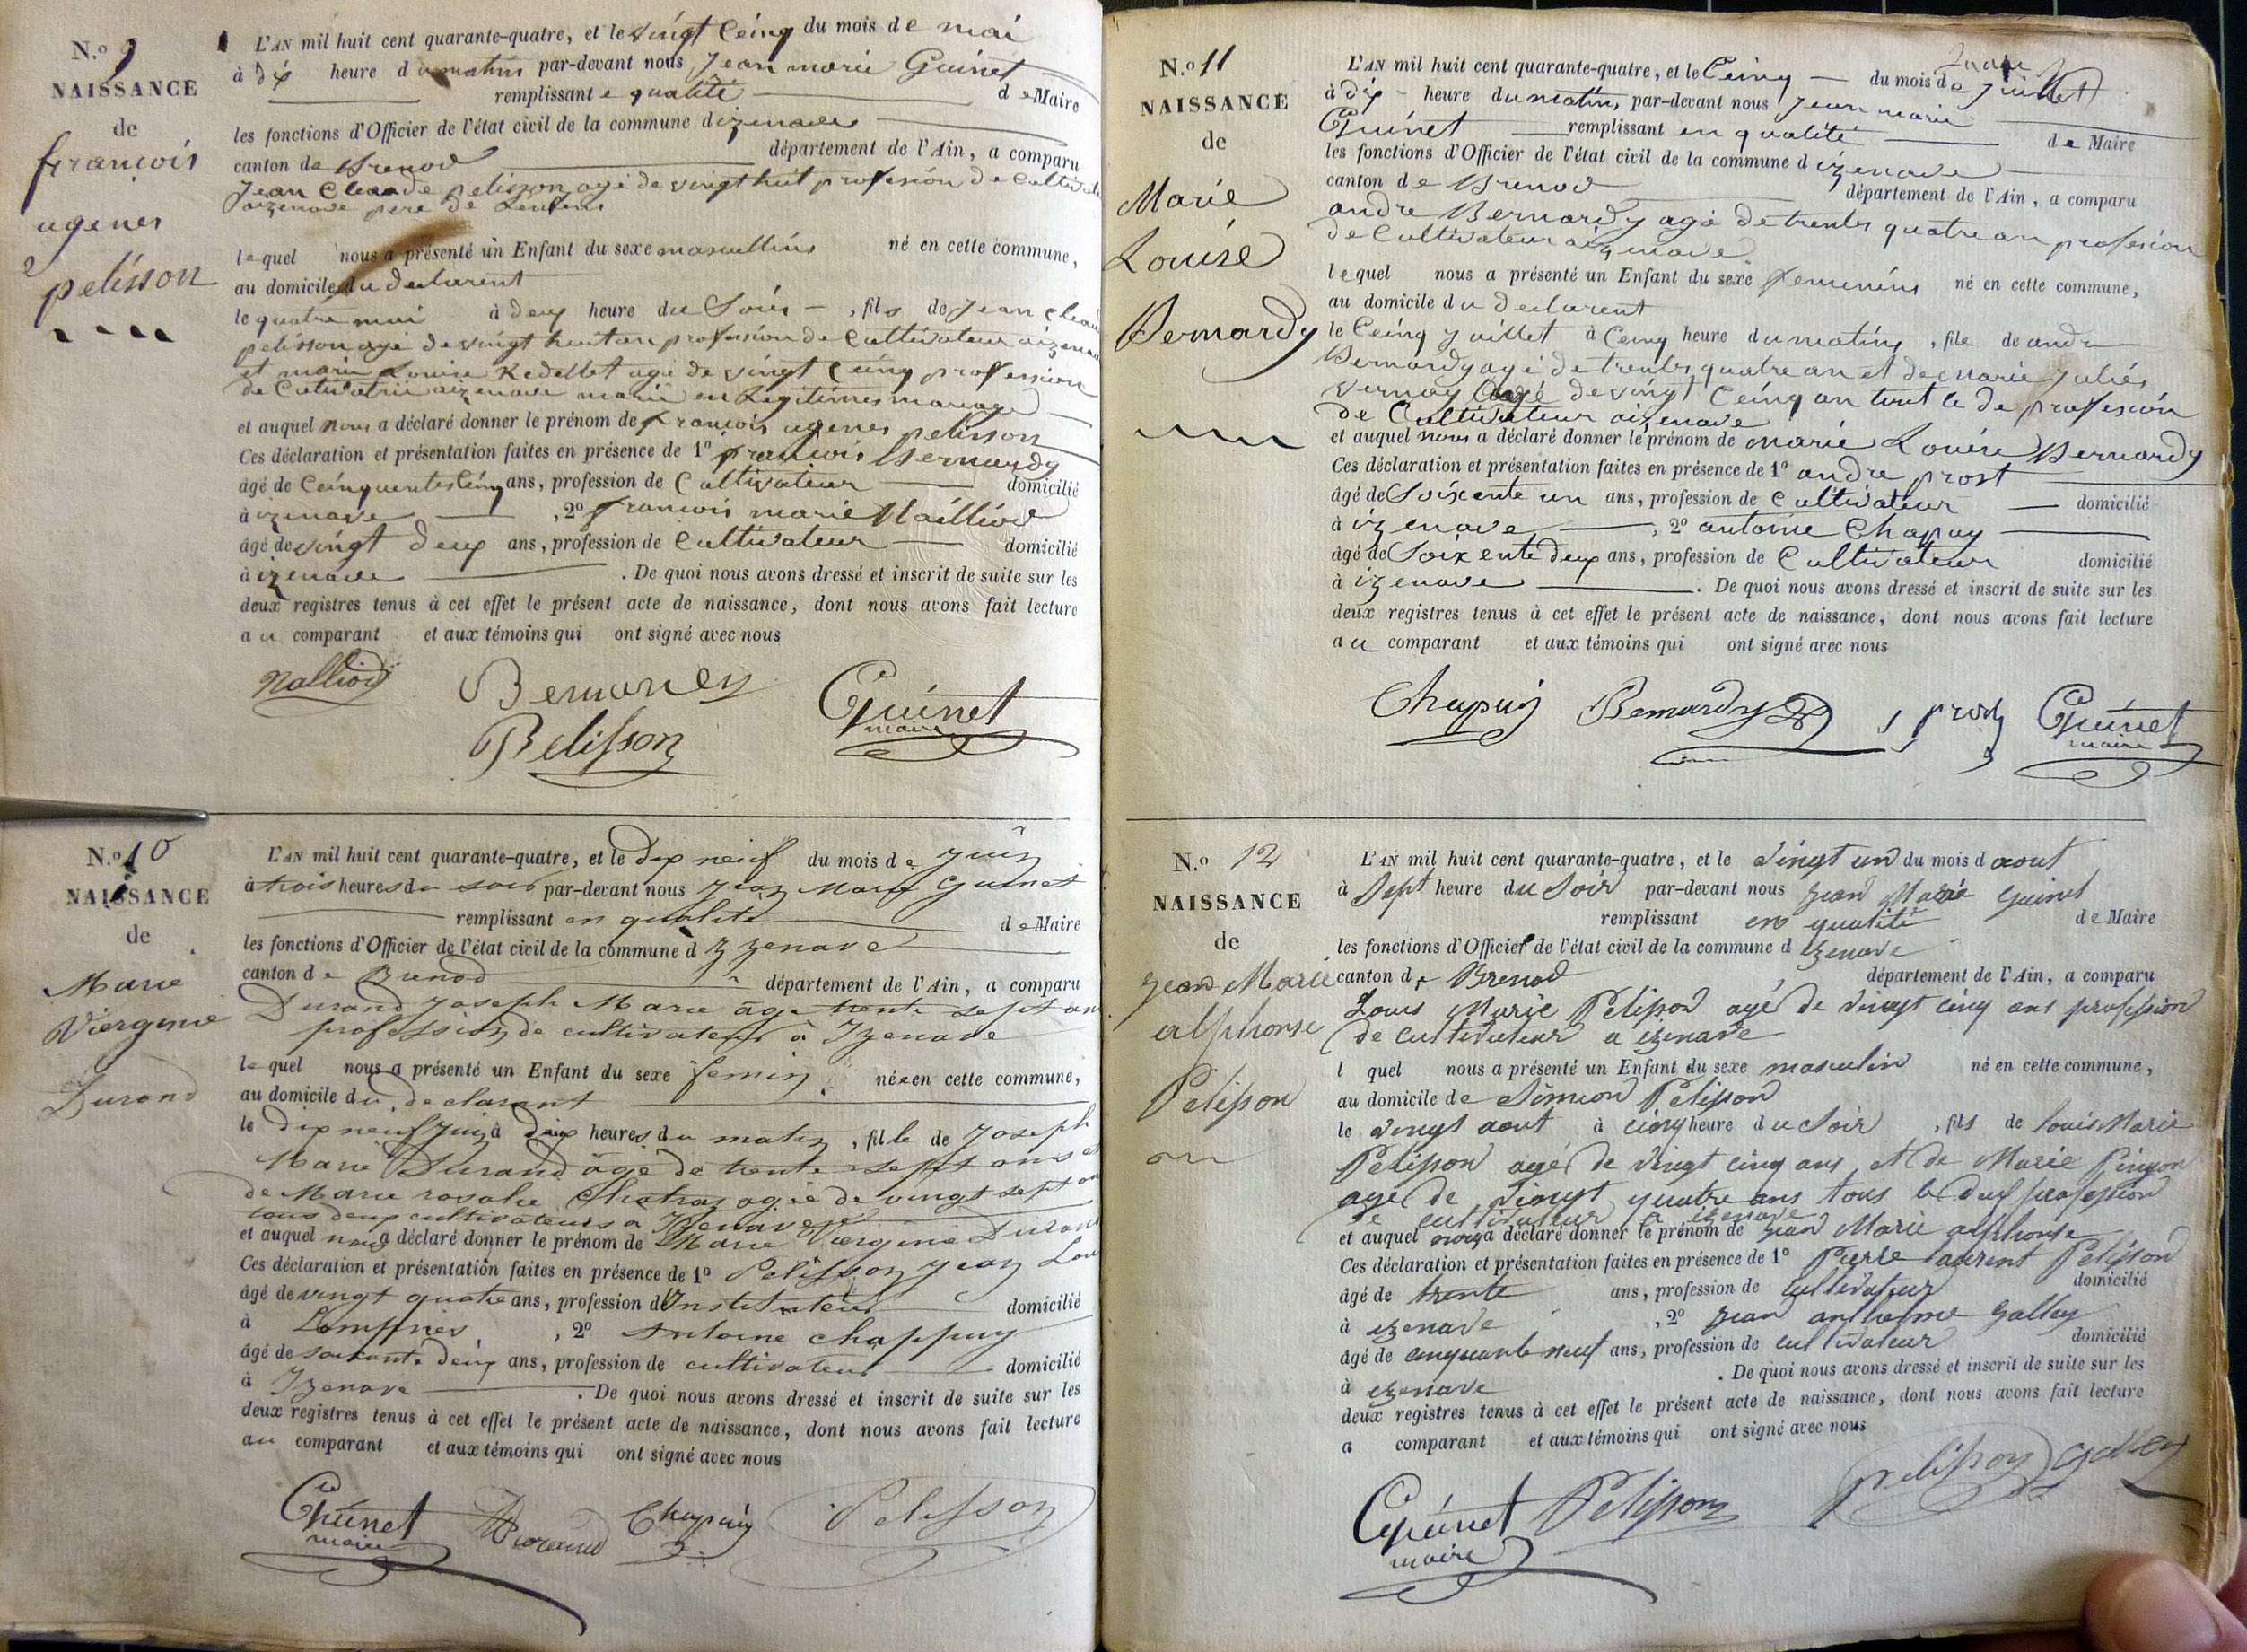 N.o 9
NAISSANCE
de
françois
ugenes
pelisson
L'AN mil huit cent quarante-quatre, et le vingt Ceinq du mois de mai
à dix heure du matin par-devant nous Jean marie Guinet
remplissant e qualité de Maire
les fonctions d'Officier de l'état civil de la commune dizenave
canton de Brenod département de l'Ain, a comparu
Jean Cleaude pelisson agé de vingt huit profesion de Cultivate
aizenave pere de Lenfens
lequel nous a présenté un Enfant du sexe mascullins né en cette commune,
au domicile du declarent
le quatre mai à deux heure du Soir, fils de Jean Cleau
pelisson age de vingt huit an profession de Cultivateur aizenave
et marie Louise Redellet agé de vingt Ceinq profession
de Cultivatrie aizenave marié en Légitimes mariage
et auquel nous a déclaré donner le prénom de françois ugenes pelisson
Ces déclaration et présentation faites en présence de 1o françois Bernardy
âgé de Ceinquentes Ceinq ans, profession de Cultivateur domicilié
à izenave, 2o françois marie Nalliod
âgé de vingt deux ans, profession de Cultivateur domicilié
à izenave. De quoi nous avons dressé et inscrit de suite sur les
deux registres tenus à cet effet le présent acte de naissance, dont nous avons fait lecture
au comparant et aux témoins qui ont signé avec nous
Nalliod Bernardy Guinet
maire
Pelisson
N.o 10
NAISSANCE
de
Marie
Viergenie
Durand
L'AN mil huit cent quarante-quatre, et le dix neuf du mois de juin
à trois heures du soir par-devant nous Jean Marie Guinet
remplissant en qualité de Maire
les fonctions d'Officier de l'état civil de la commune d yzenave
canton de Brenod département de l'Ain, a comparu
Durand Joseph Marie âgé trente sept ans
profession de cultivateur à Izenave
lequel nous a présenté un Enfant du sexe femin née en cette commune,
au domicile du declarant
le dix neuf juin à deux heures du matin, fille de Joseph
Marie Durand âgé de trente sept ans et
de Marie rosalie Chatraz agée de vingt sept an
tous deux cultivateurs a Izenave
et auquel nous a déclaré donner le prénom de Marie Viergenie Durand
Ces déclaration et présentation faites en présence de 1o Pelisson Jean Lou
âgé de vingt quatre ans, profession d'Instituteur domicilié
à Lompnes, 2o Antoine chappuy
âgé de soixante deux ans, profession de cultivateur domicilié
à Izenave. De quoi nous avons dressé et inscrit de suite sur les
deux registres tenus à cet effet le présent acte de naissance, dont nous avons fait lecture
au comparant et aux témoins qui ont signé avec nous
Guinet Durand Chapuiy Pelisson
maire
N.o 11
NAISSANCE
de
Marie
Louise
Bernardy
L'AN mil huit cent quarante-quatre, et le Ceinq du mois de juillet
à dix heure du matin, par-devant nous jean marie
Guinet remplissant en qualité de Maire
les fonctions d'Officier de l'état civil de la commune d izenave
canton de Brenod département de l'Ain, a comparu
andre Bernardy agé de trentes quatre an profesion
de Cultivateur aizenave
lequel nous a présenté un Enfant du sexe femenins né en cette commune,
au domicile du declarent
le Ceinq juillet à Ceinq heure du matins, file de andre
Bernardy agé de trentes quatre an et de marie julies
vernay agé de vingt Ceinq an tout le de profesion
de Cultivateur aizenave
et auquel nous a déclaré donner le prénom de marie Louise Bernardy
Ces déclaration et présentation faites en présence de 1o andre prost
âgé de Soixente un ans, profession de Cultivateur domicilié
à izenave, 2o antoine Chapuy
âgé de Soixente deux ans, profession de Cultivateur domicilié
à izenave. De quoi nous avons dressé et inscrit de suite sur les
deux registres tenus à cet effet le présent acte de naissance, dont nous avons fait lecture
au comparant et aux témoins qui ont signé avec nous
Chapuiy Bernardy prost Guinet
maire
N.o 12
NAISSANCE
de
jean Marie
alphonse
Pelisson
L'AN mil huit cent quarante-quatre, et le vingt un du mois d aout
à Sept heure du Soir par-devant nous jean Marie Guinet
remplissant en qualité de Maire
les fonctions d'Officier de l'état civil de la commune d izenave
canton de Brenod département de l'Ain, a comparu
Louis Marie Pelisson agé de vingt cinq ans profession
de cultivateur a izenave
l quel nous a présenté un Enfant du sexe masculin né en cette commune,
au domicile de Simeon Pelisson
le vingt aout à cinq heure du Soir, fils de louis Marie
Pelisson agé de vingt cinq ans, et de Marie Pingon
agé de vingt quatre ans tous le deux profession
de cultivateur a izenave
et auquel nous a déclaré donner le prénom de jean Marie alphonse
Ces déclaration et présentation faites en présence de 1o Pierre laurent Pelisson
âgé de trente ans, profession de cultivateur domicilié
à izenave, 2o jean anthelme galley
âgé de cinquante neuf ans, profession de cultivateur domicilié
à izenave. De quoi nous avons dressé et inscrit de suite sur les
deux registres tenus à cet effet le présent acte de naissance, dont nous avons fait lecture
a comparant et aux témoins qui ont signé avec nous
Guinet Pelisson pelisson galley
maire